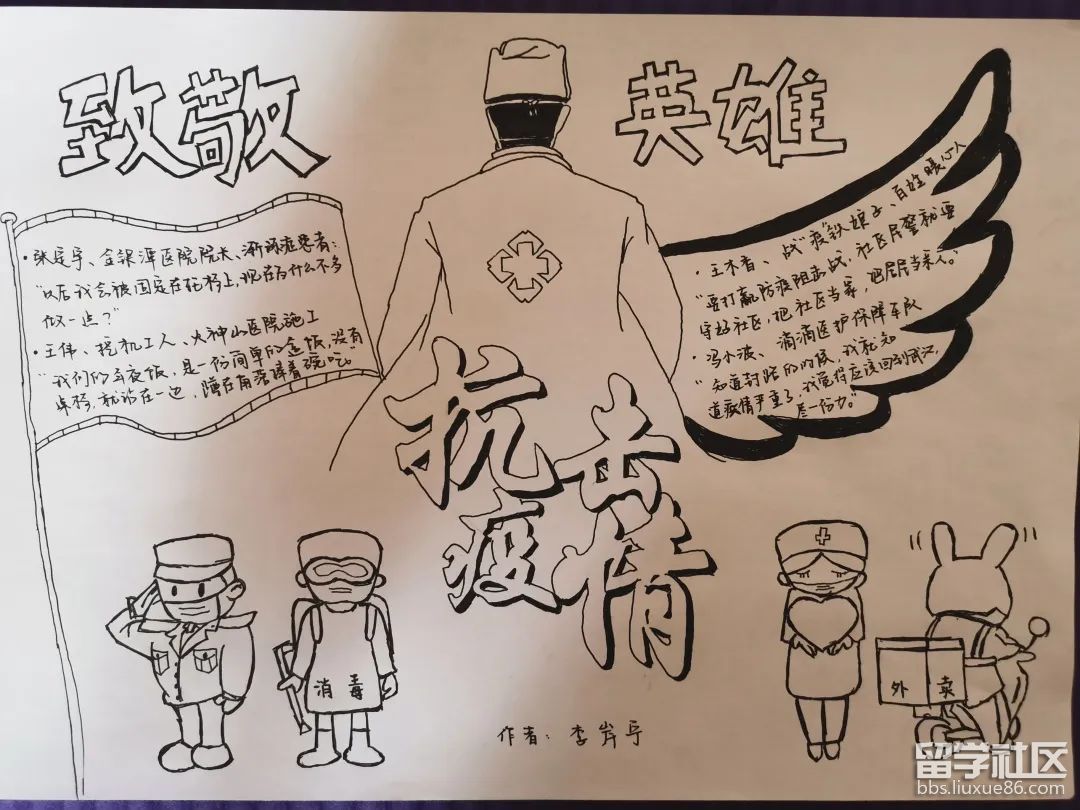 致敬
英雄
·张定宇、金银潭医院院长、渐冻症患者:
“以后我会被固定在轮椅上,现在为什么不多
做一点?”
·王伟、挖机工人、火神山医院施工
“我们的年夜饭,是一份简单的盒饭,没有
桌椅,就站在一边,蹲在角落捧着碗吃。
·王木香、战“疫”铁娘子、百姓暖心人
“要打赢防疫阻击战,社区民警就要
守好社区,把社区当家,把居民当亲人。”
·冯小波、滴滴医护保障车队
“知道封路的时候,我就知
道疫情严重了,我觉得应该回到武汉,
尽一份力。”
抗击
疫情
消毒
外卖
作者:李
留学社区
bbs.liuxue86.com